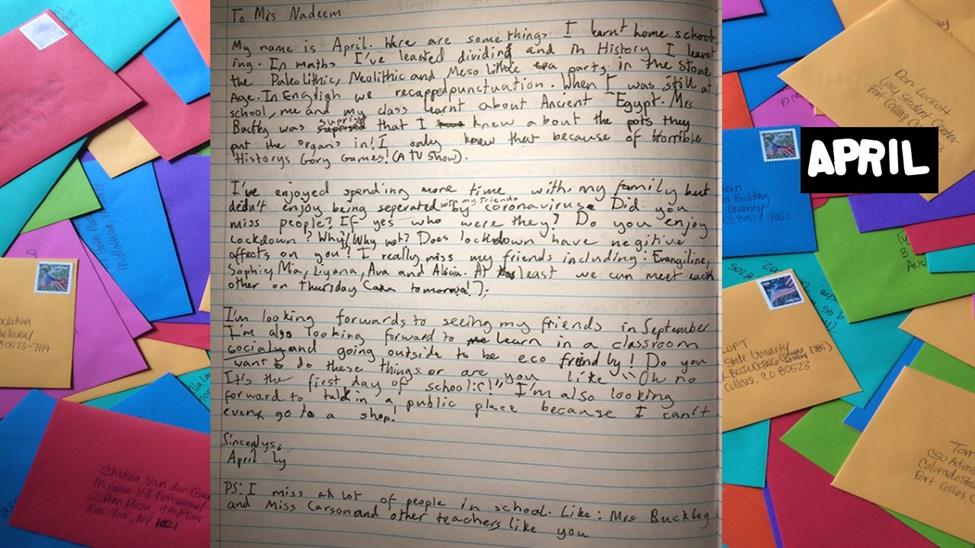 To Mrs Nadeem
My name is April. Here are some things I learnt home school
ing. In maths I've leasted dividing and in History I learnt
the Paleolithic, Neolithic and Mesolithic parts in the Stone
Age. In English we recapped punctuation. When I was still at
school, me and my class learnt about Ancient Egypt. Mrs
was that I knew about the pots they
put the organs in! I only knew that because of Horrible
Historys Gory Games! (A TV Show).
I've enjoyed spending more time with my family but
didn't enjoy being seperated with my friends by coronaviruse Did you
miss people? If yes who were they? Do you enjoy
Lockdown? Why/Why not? Does lockdown have negitive
affects on you? I really miss my friends including: Evangiline,
Sophie, Mia, Liyana, Ava and Alicia. At least we can meet each
other on thursday
I'm looking forwards to seeing my friends in September
I'm also looking forward to learn in a classroom
socialy and going outside to be eco Do you
want to do these things or are you like "Oh no
It's the first day of school:(!" I'm also looking
forward to talk in a public place because I can't
even go to a shop!
Sincerlys,
April Ly
PS: I miss ah lot of people in school. Like: Mrs Buckley
and Miss Carson and other teachers like you
APRIL
Don Luckett
Lory Student Center
Fort Collins, CO
80523-7114
CO 80523-1062
State University
Collins, CO 80523
Chelsea Van der
2 Penn Plaza
New York, NY
Tom
Colorado
Fort Collins,